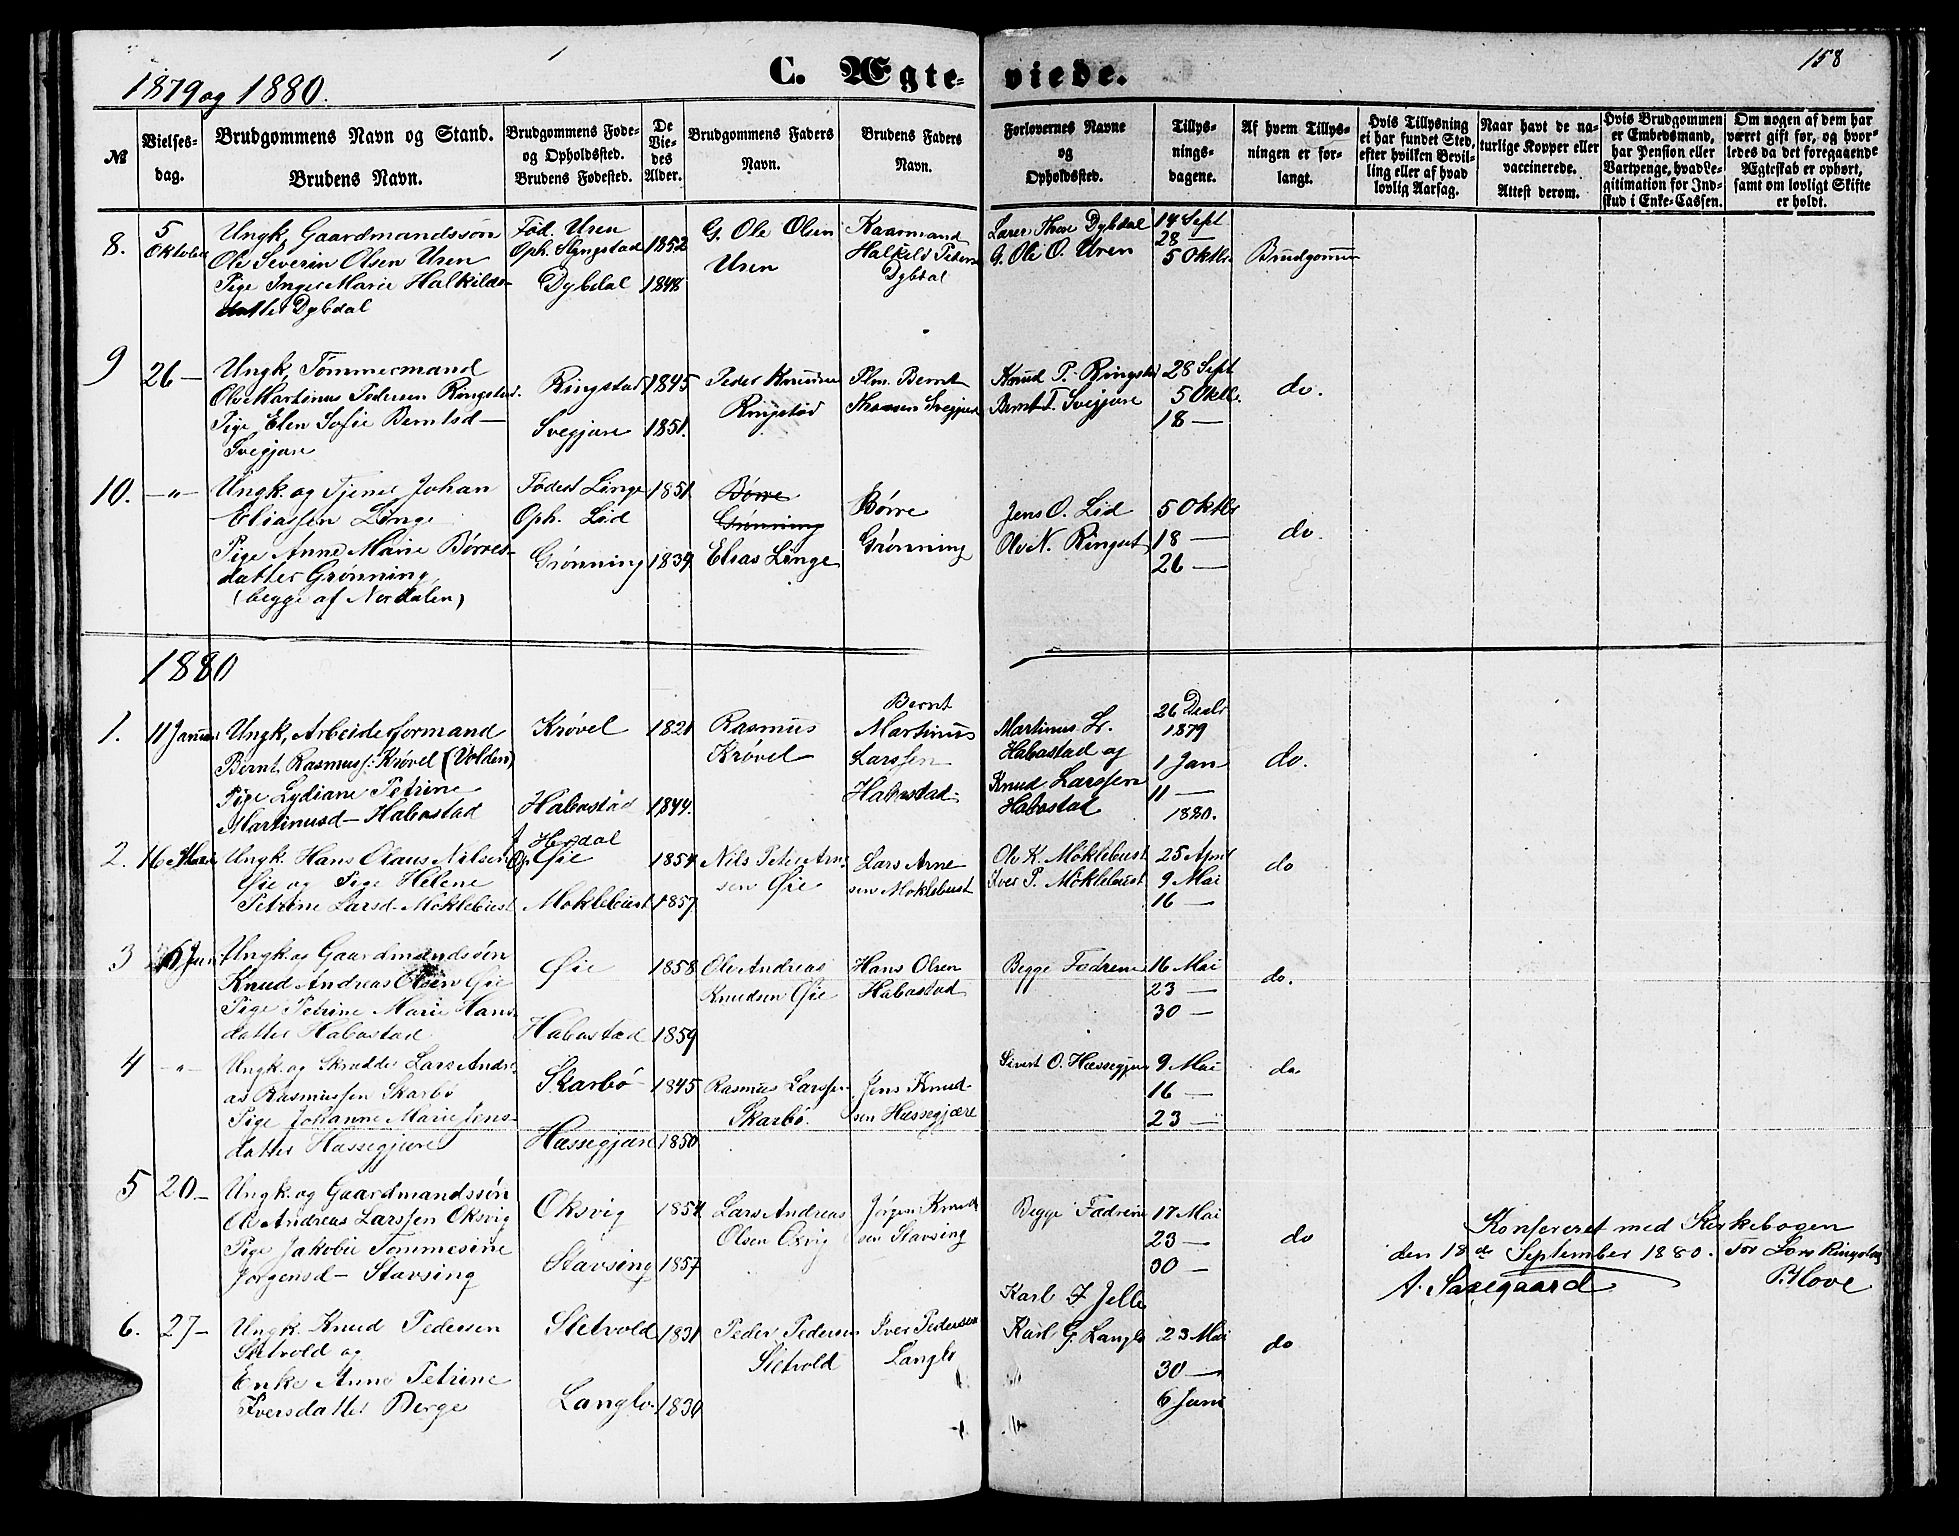 1879 og 1880.
C. Ægteviede.
158
№
Vielses-
dag.
Brudgommens Navn og Stand.
Brudens Navn.
Brudgommens Føde-
og Opholdssted.
Brudens Fødested.
De
Vie-
des
Alder.
Brudgommens Faders
Navn.
Brudens Faders
Navn.
Forlovernes Navne
og
Opholdssted.
Tillys-
nings-
dagene.
Af hvem Tillys-
ningen er for-
langt.
Hvis Tillysning
ei har fundet Sted,
efter hvilken Bevil-
ling eller af hvad
lovlig Aarsag.
Naar havt de na-
turlige Kopper eller
vaccinerede.
Attest derom.
Hvis Brudgommen
er Embedsmand,
har Pension eller
Vartpenge, hvad Le-
gitimation for Ind-
skud i Enke-Cassen.
Om nogen af dem har
været gift før, og hvor-
ledes da det foregaaende
Ægteskab er ophørt,
samt om lovligt Skifte
er holdt.
8.
5
Oktober
Ungk. Gaardmandssøn
Ole Severin Olsen Uren
Pige Inger Marie Halkilds-
datter Dybdal
Fød. Uren
Oph.
Dybdal
1852
1848
G. Ole Olsen
Uren
Kaarmand
Halkild Peders
Dybdal
Lærer Thore Dybdal
G. Ole O. Uren
14 Sept
28 —
5 Oktbr.
Brudgommen
9
26 —
Ungk. Tømmermand
Ole Martinus Pedersen Ringstad.
Pige Elen Sofie Berntsd —
Svegjøre
Ringstad
Svegjøre
1845
1851.
Peder Knudsen
Ringstad
Plm. Bernt
Thoresen Svegjøre
Knud P. Ringstad
Bernt T. Svegjøre
28 Sept
5 Oktb.
18 —
do.
10.
—"—
Ungk. og Tjener Johan
Eliassen Linge
Pige Anne Marie Børres-
datter Grønning
(begge af Nordalen)
Fødest Linge
Oph. Lid
Grønning
1851
1839
Børre
Grønning
Elias Linge
Børre
Grønning
Jens O. Lid
Ole N. Ringset
5 Oktbr
18 —
26 —
do.
1880
1.
11 Januar
Ungk. Arbeidsformand
Bernt Rasmuss: Krøvel (Volden)
Pige Lydiane Petrine
Martinusd — Habostad
Krøvel
Habostad
1821
1844.
Rasmus
Krøvel
Bernt
Martinus
Larssen
Habostad
Martinus L.
Habostad og
Knud Larssen
Habostad
26 Decbr
1879
1 Jan
11 —
1880.
do.
2.
16 Mai
Ungk. Hans Olaus Nilsen
Øie og Pige Helene
Petrine Larsd. Moklebust
Herdal
Øie
Moklebust
1854
1857.
Nils Peter Arne-
sen Øie
Lars Arne
sen Moklebust
Ole K. Moklebust
Iver P. Moklebust
25 April
9 Mai
16 —
do
3
6 Juni
Ungk. og Gaardmandssøn
Knud Andreas Olsen Øie
Pige Petrine Marie Hans
datter Habostad
Øie
Habostad
1858
1859
Ole Andreas
Knudsen Øie
Hans Olsen
Habostad
Begge Fædrene
16 Mai
23 —
30 —
do.
4
—"—
Ungk. og Skrædder Lars Andre-
as Rasmussen Skarbø
Pige Johanne Marie Jens-
datter Hæssegjære
Skarbø
Hæssegjære
1845
1850
Rasmus Larssen
Skarbø.
Jens Knud-
sen Hæssegjære
Sivert O. Hæssegjære
9 Mai
16 —
23 —
do
5
20 —
Ungk. og Gaardmandssøn
Ole Andreas Larssen Oksvig
Pige Jakobie Tommesine
Jørgensd — Stavsing
Oksvig
Stavsing
1854
1857
Lars Andreas
Olsen Oxvig
Jørgen Knud-
sen Stavsing
Begge Fædrene
17 Mai
23 —
30 —
do
Konfereret med Kirkebogen
den 18de September 1880. For Lars Ringstad
A. Saxegaard
P. Hove
6.
27 —
Ungk. Knud Pedersen
Sletvold og
Enke Anne Petrine
Iversdatter Berge
Sletvold
Langlo.
1831
1830
Peder Pedersen
Sletvold
Iver Pedersen
Langlo
Karl J Jelle
Karl G. Langlo
23 Mai
30 —
6 Juni
do